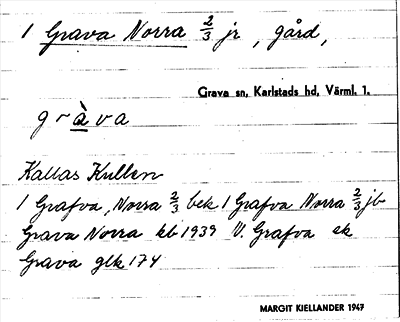 1 Grava Norra 2/3 jr, gård,
Grava sn, Karlstads hd, Värml. 1.
gràva
Kallas Kullen
1 Grafva, Norra 2/3 bek 1 Grafva Norra 2/3 jb
Grava Norra kb 1939 N. Grafva ek
Grava glk 174
MARGIT KIELLANDER 1947